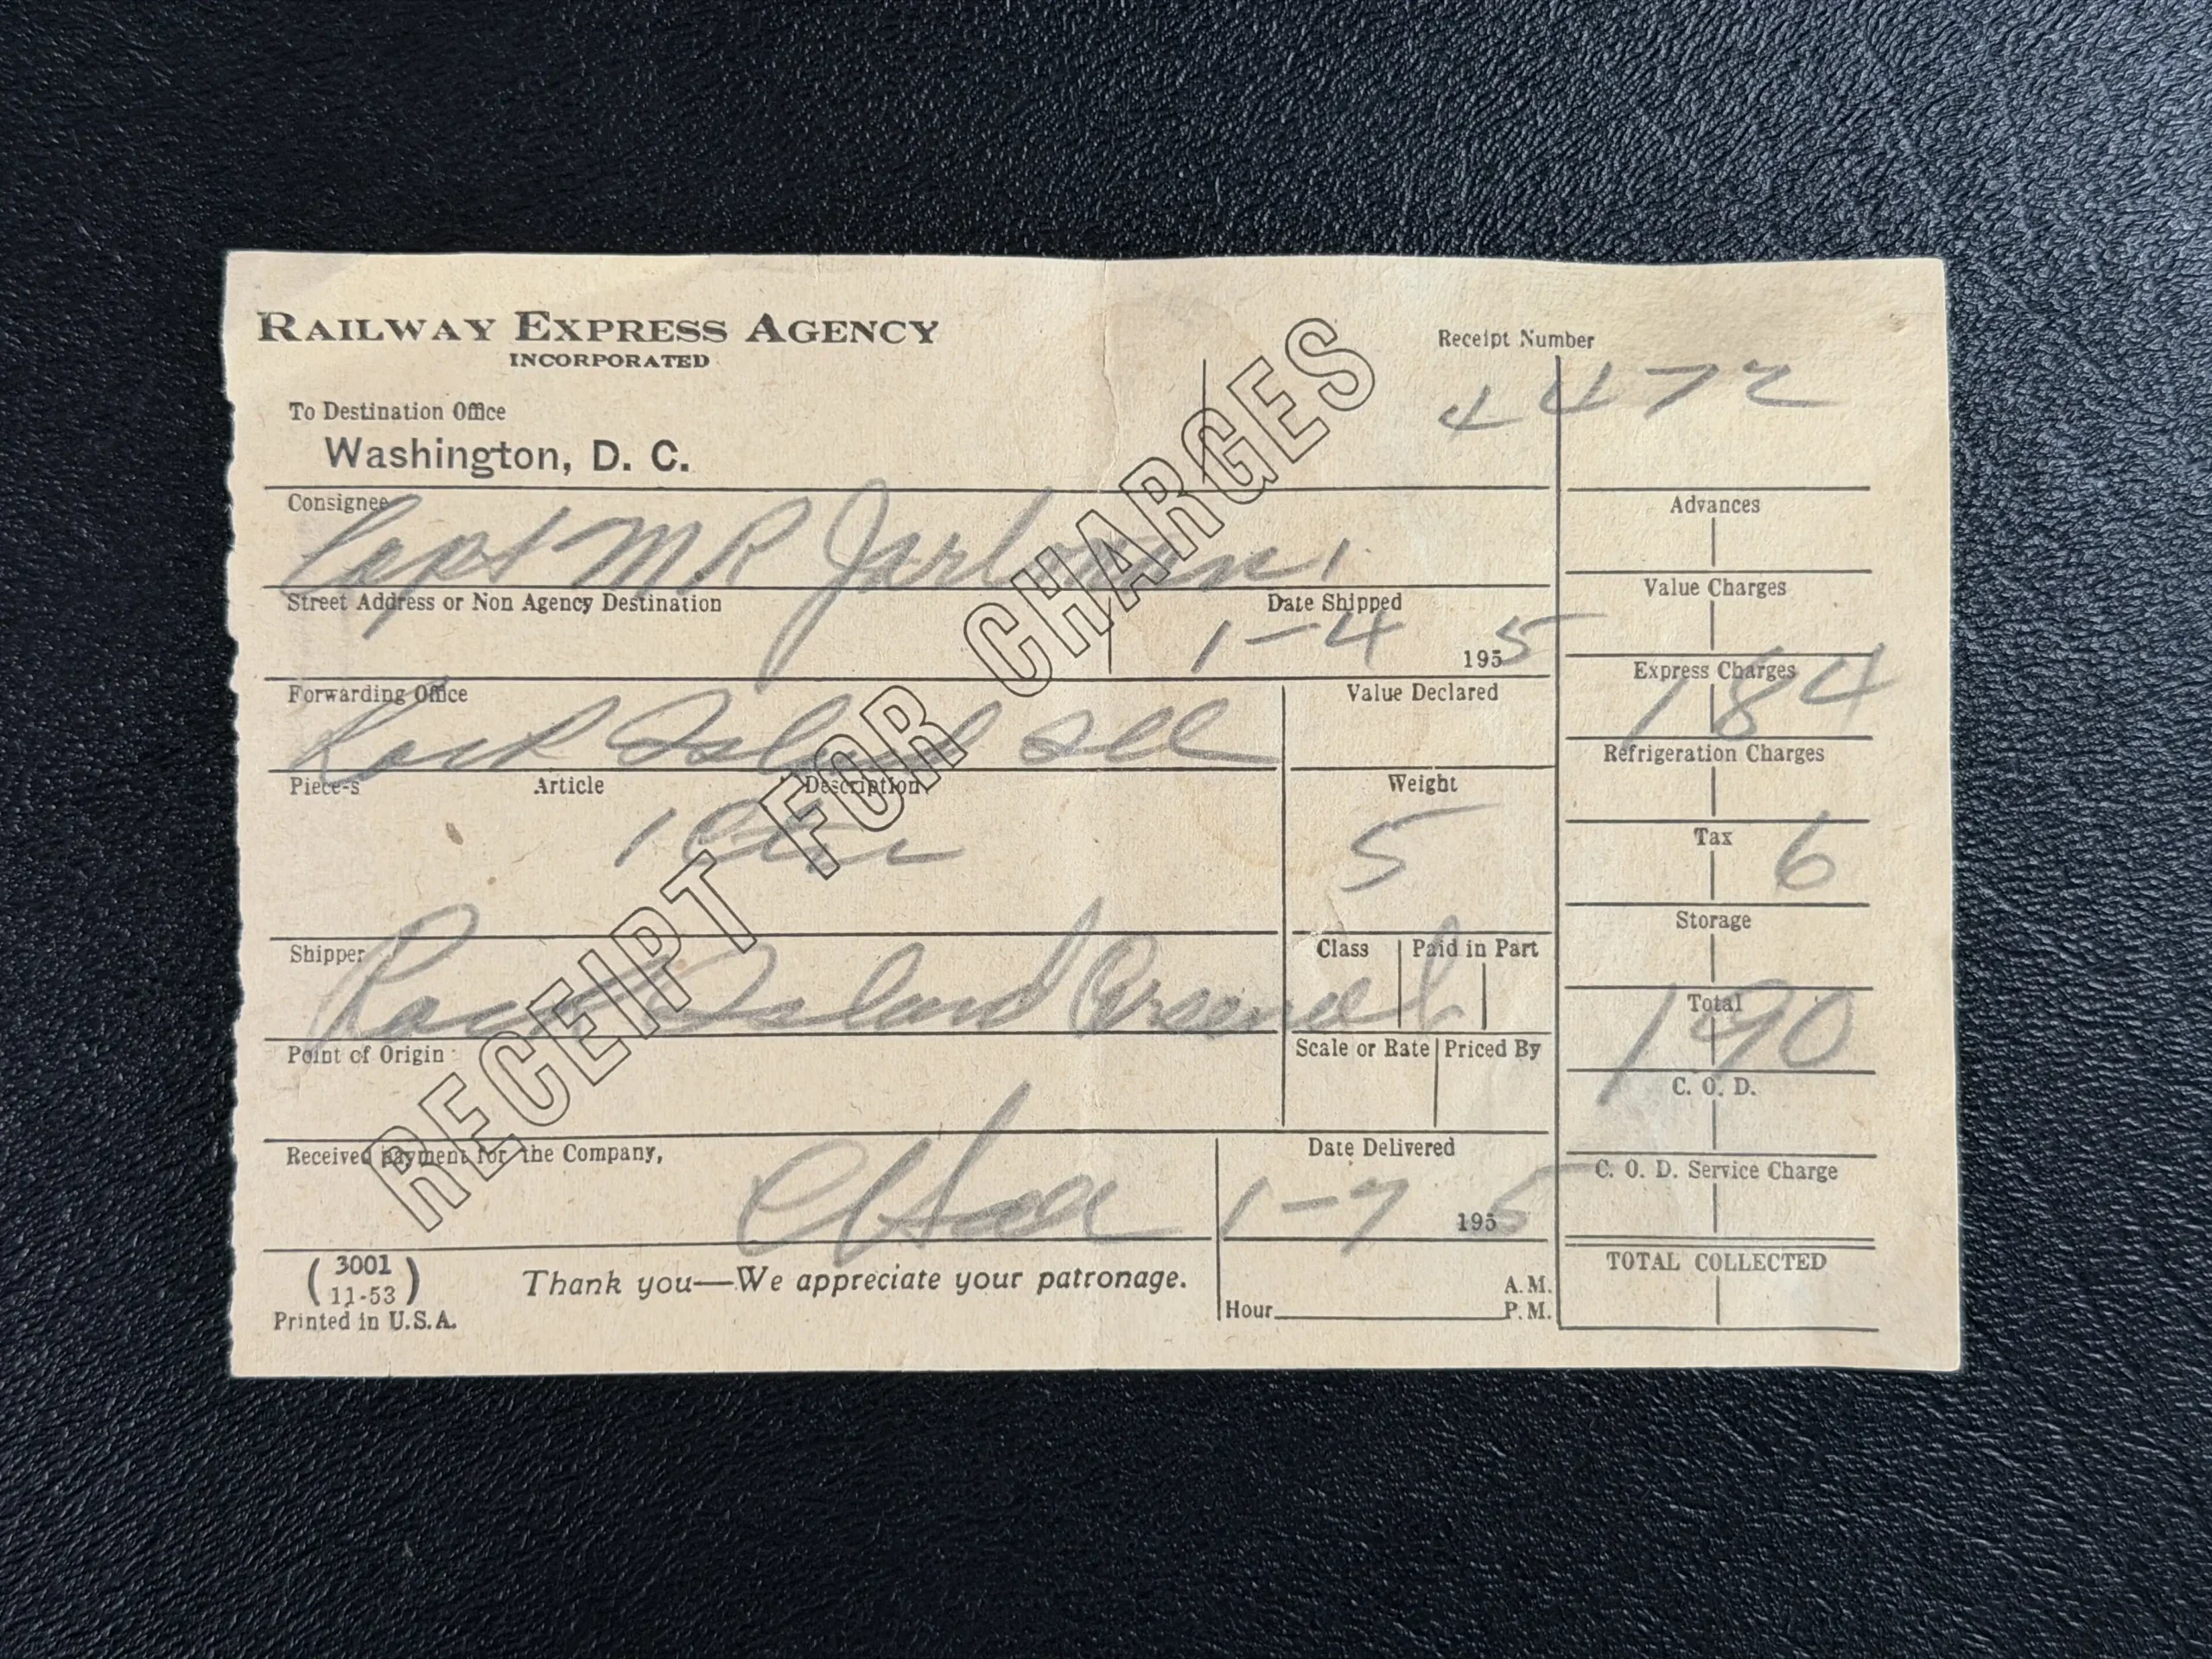 RAILWAY EXPRESS AGENCY
INCORPORATED
Receipt Number
4472
To Destination Office
Washington, D. C.
Consignee
Capt M R Jarlman
Street Address or Non Agency Destination
Date Shipped
1-4 1955
Forwarding Office
Rock Island Ill
Value Declared
Piece-s Article Description
1 Ctn
Weight
5
Shipper
Rock Island Arsenal
Class Paid in Part
Point of Origin
Scale or Rate Priced By
Received payment for the Company,
Date Delivered
1-7 1955
(3001
11-53)
Printed in U.S.A.
Thank you—We appreciate your patronage.
Hour A.M.
P.M.
Advances
Value Charges
Express Charges
184
Refrigeration Charges
Tax 6
Storage
Total
190
C. O. D.
C. O. D. Service Charge
TOTAL COLLECTED
RECEIPT FOR CHARGES